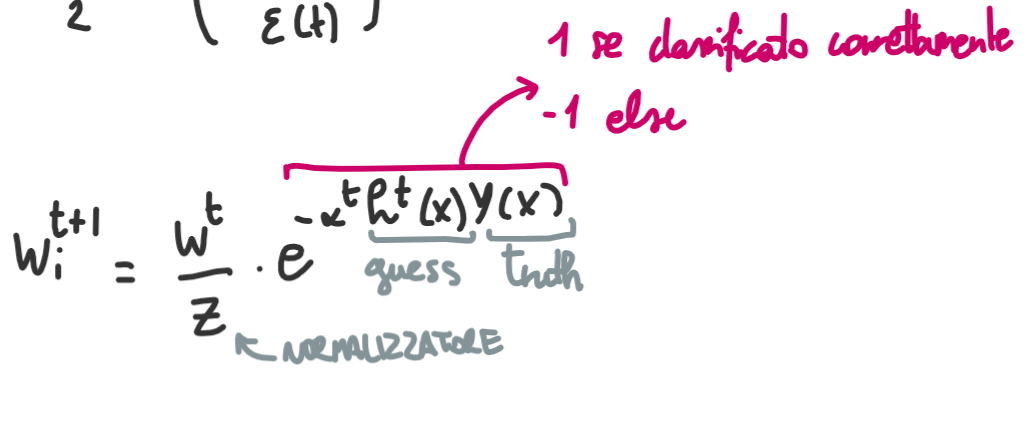 2 ( ε(t) )
1 se classificato correttamente
-1 else
w_i^{t+1} = w^t / z · e^{-α^t h^t(x) y(x)}
guess truth
NORMALIZZATORE